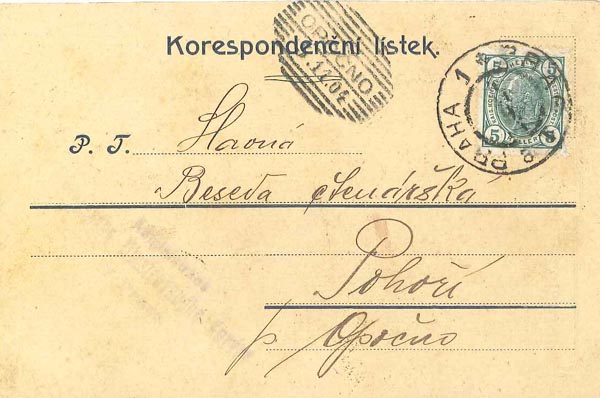 OPOČNO
Korespondenční lístek.
5 5
PRAHA 1
5
P. T. Slavná
Beseda čtenářská
Pohoří
p. Opočno